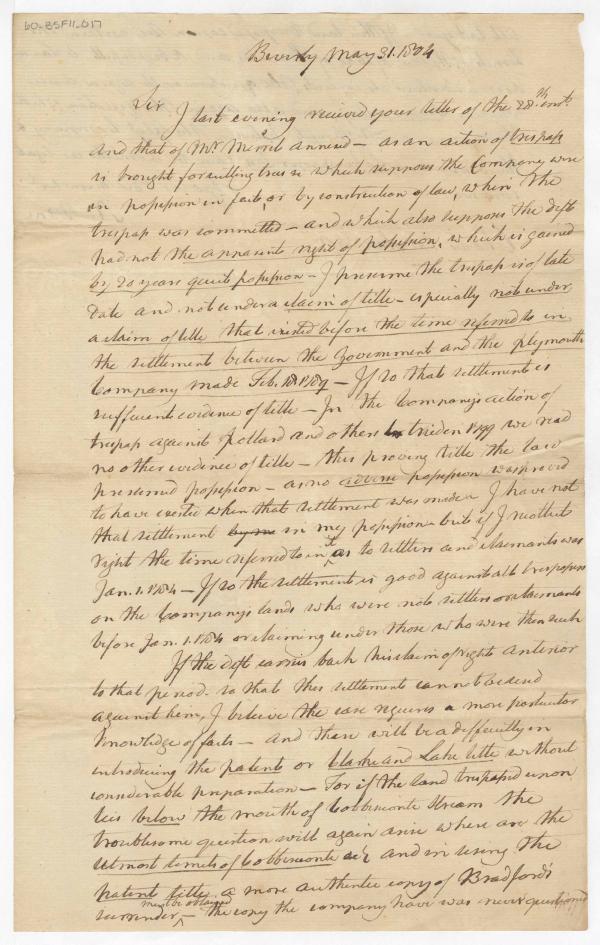 60-BSF11-017
Beverly May 31. 1804
Sir I last evening received your letter of the 28th inst.
and that of Mr. Merril annexed – as an action of trespass
is brought for cutting trees which supposes the Company were
in possession in fact, or by construction of law, when the
trespass was committed – and which also supposes the deft
had not the apparent right of possession, which is gained
by 20 years quiet possession – I presume the trespass is of late
date and not under a claim of title – especially not under
a claim of title that existed before the time referred to in
the settlement between the Government and the plymouth
Company made Feb. 1789 – If so that settlement is
sufficient evidence of title – In the Company's action of
trespass against Pollard and others tried in 1799 we read
no other evidence of title – this proving title the law
presumed possession – as no adverse possession was proved
to have existed when that settlement was made I have not
that settlement in my possession – but if I recollect
right the time referred to in it as to settlers and claimants was
Jan. 1. 1784 – If so the settlement is good against all trespassers
on the Company's lands who were not settlers or claimants
before Jan. 1. 1784 or claiming under those who were then such
If the deft carries back his claim of right anterior
to that period so that this settlement cannot be used
against him, I believe the case requires a more particular
knowledge of facts – and there will be a difficulty in
introducing the patent or Clarke and Lake title without
considerable preparation – For if the land trespassed upon
lies below the mouth of Cobbiseconte stream the
troublesome question will again arise where are the
utmost limits of Cobbiseconte &c and in using the
patent title, a more authentic copy of Bradford's
surrender must be obtained – the copy the company have was never questioned